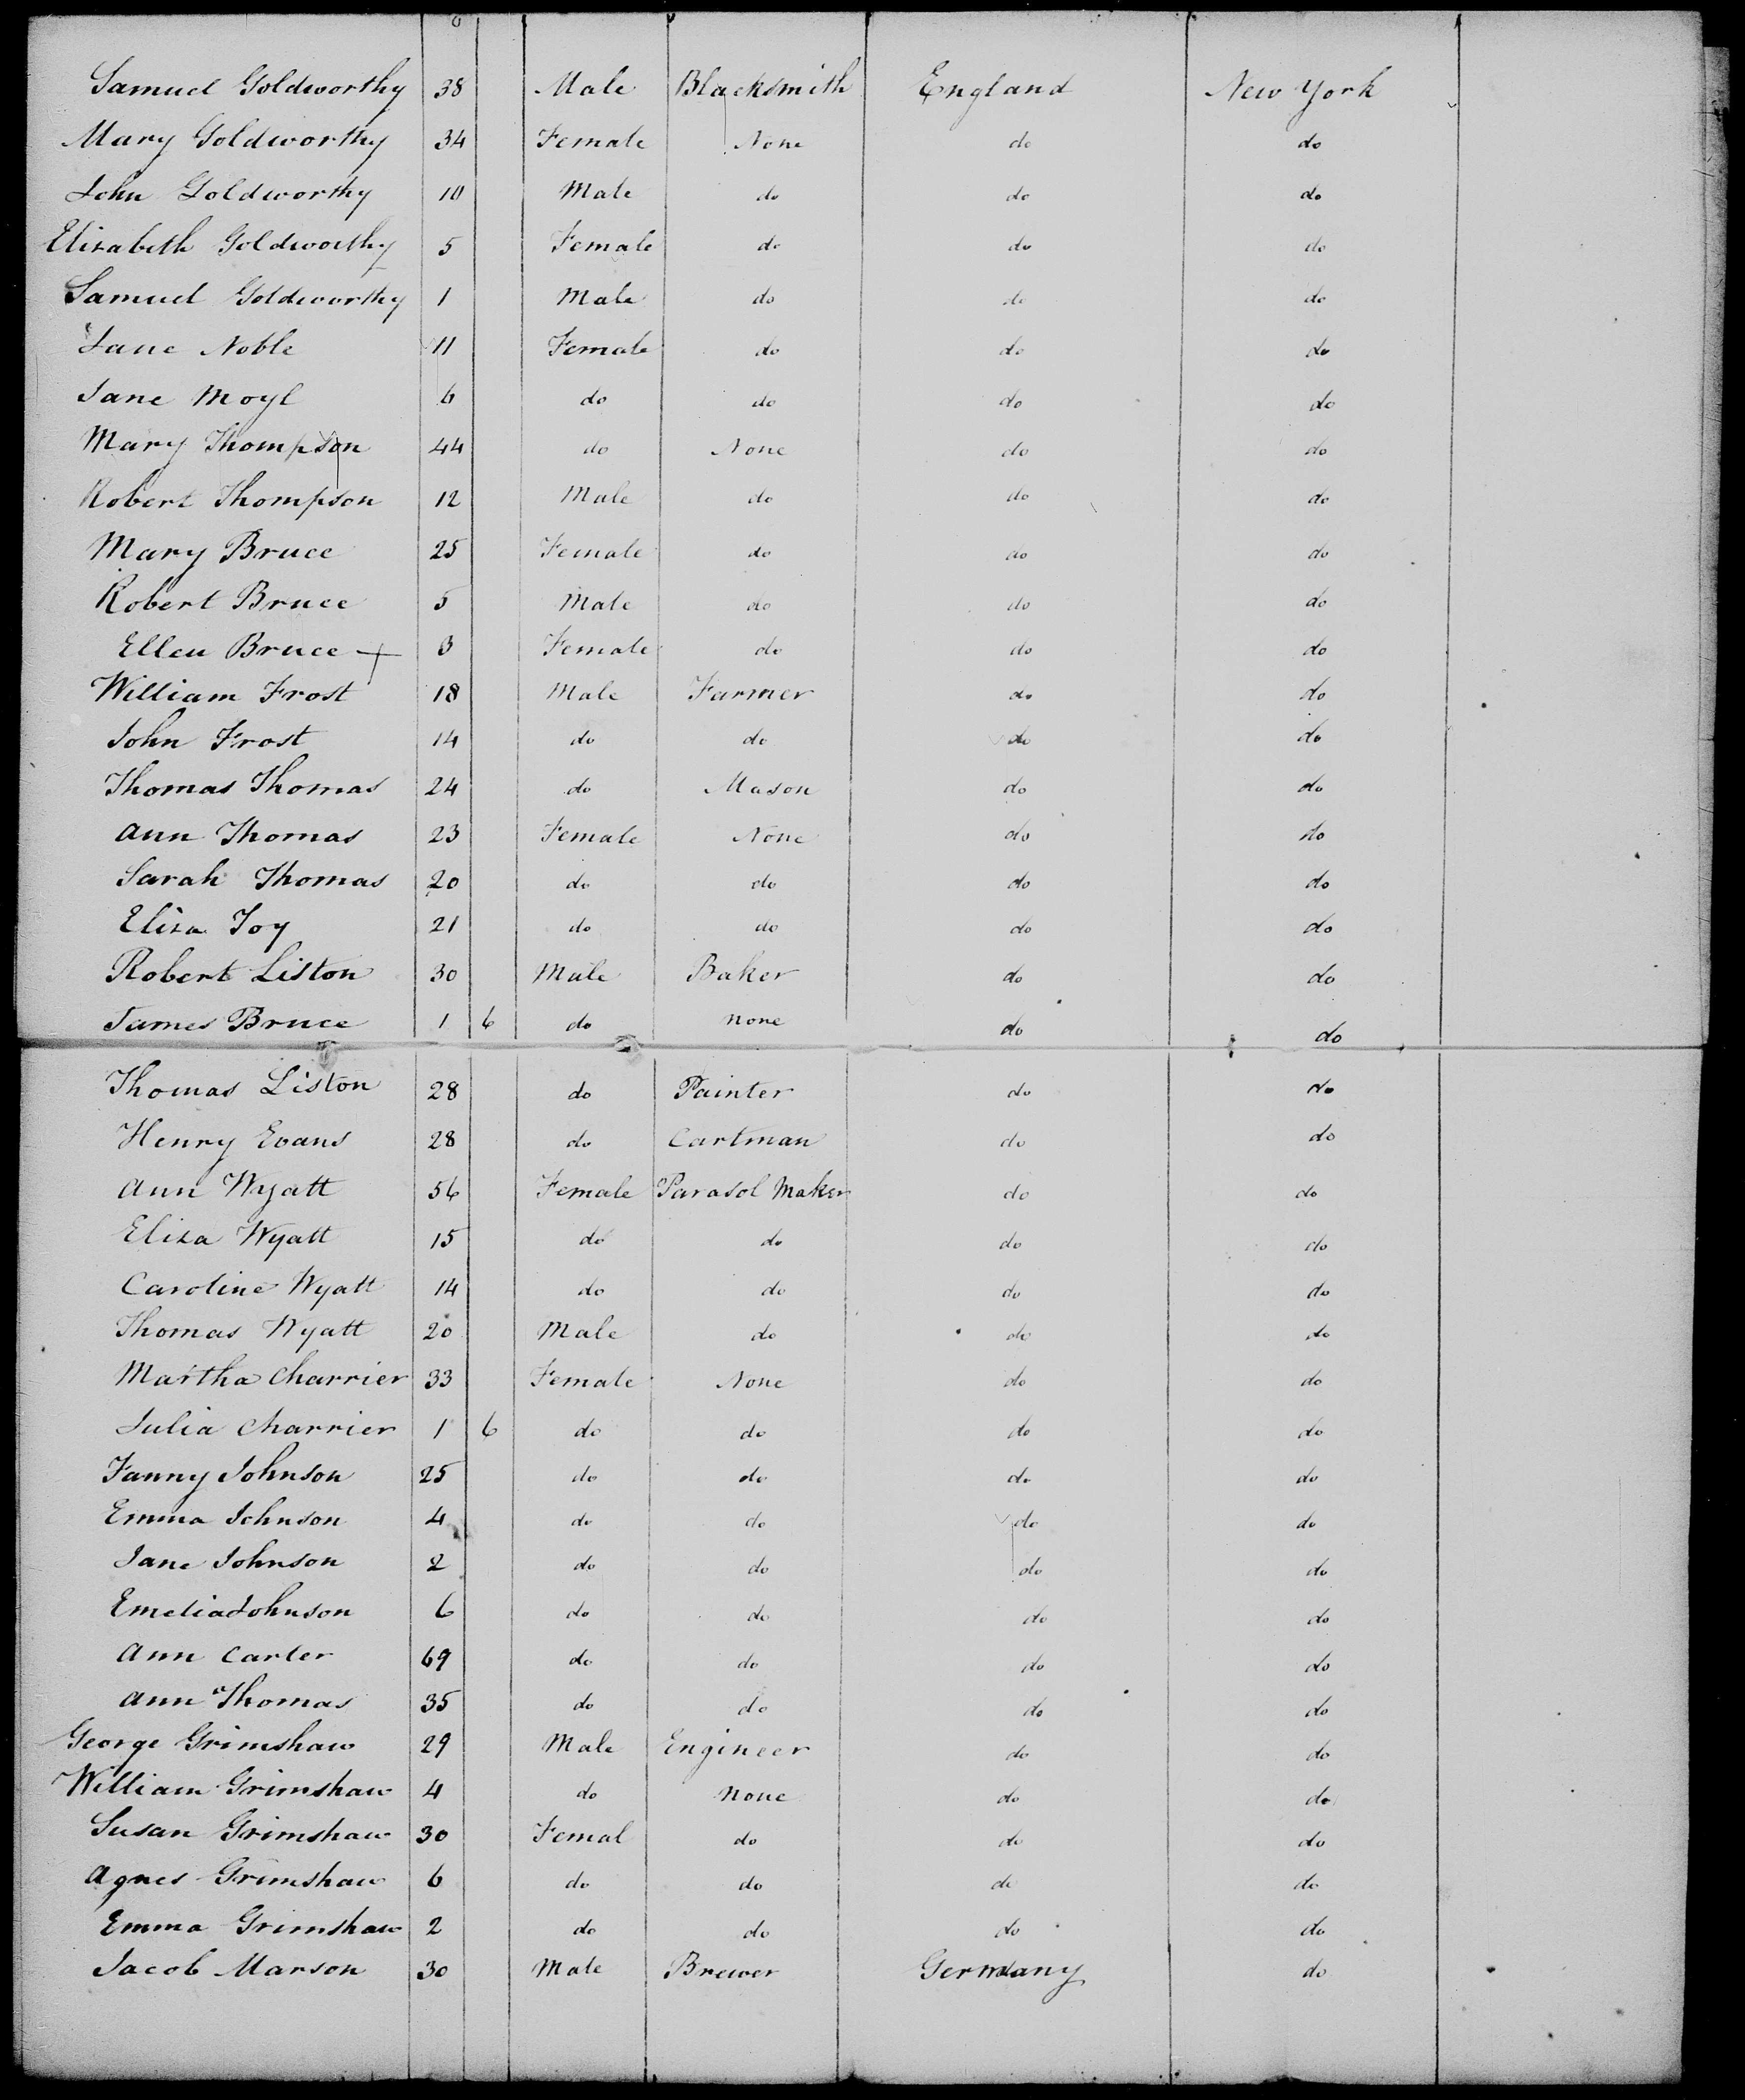 Samuel Goldworthy 38 Male Blacksmith England New York
Mary Goldworthy 34 Female None do do
John Goldworthy 10 Male do do do
Elizabeth Goldworthy 5 Female do do do
Samuel Goldworthy 1 Male do do do
Jane Noble 11 Female do do do
Jane Moyl 6 do do do do
Mary Thompson 44 do None do do
Robert Thompson 12 Male do do do
Mary Bruce 25 Female do do do
Robert Bruce 5 Male do do do
Ellen Bruce + 3 Female do do do
William Frost 18 Male Farmer do do
John Frost 14 do do do do
Thomas Thomas 24 do Mason do do
Ann Thomas 23 Female None do do
Sarah Thomas 20 do do do do
Eliza Joy 21 do do do do
Robert Liston 30 Male Baker do do
James Bruce 1 6 do None do do
Thomas Liston 28 do Painter do do
Henry Evans 28 do Cartman do do
Ann Wyatt 56 Female Parasol Maker do do
Eliza Wyatt 15 do do do do
Caroline Wyatt 14 do do do do
Thomas Wyatt 20 Male do do do
Martha Charrier 33 Female None do do
Julia Charrier 1 6 do do do do
Fanny Johnson 25 do do do do
Emma Johnson 4 do do do do
Jane Johnson 2 do do do do
Emelia Johnson 6 do do do do
Ann Carter 69 do do do do
Ann Thomas 35 do do do do
George Grimshaw 29 Male Engineer do do
William Grimshaw 4 do None do do
Susan Grimshaw 30 Femal do do do
Agnes Grimshaw 6 do do do do
Emma Grimshaw 2 do do do do
Jacob Marson 30 Male Brewer Germany do